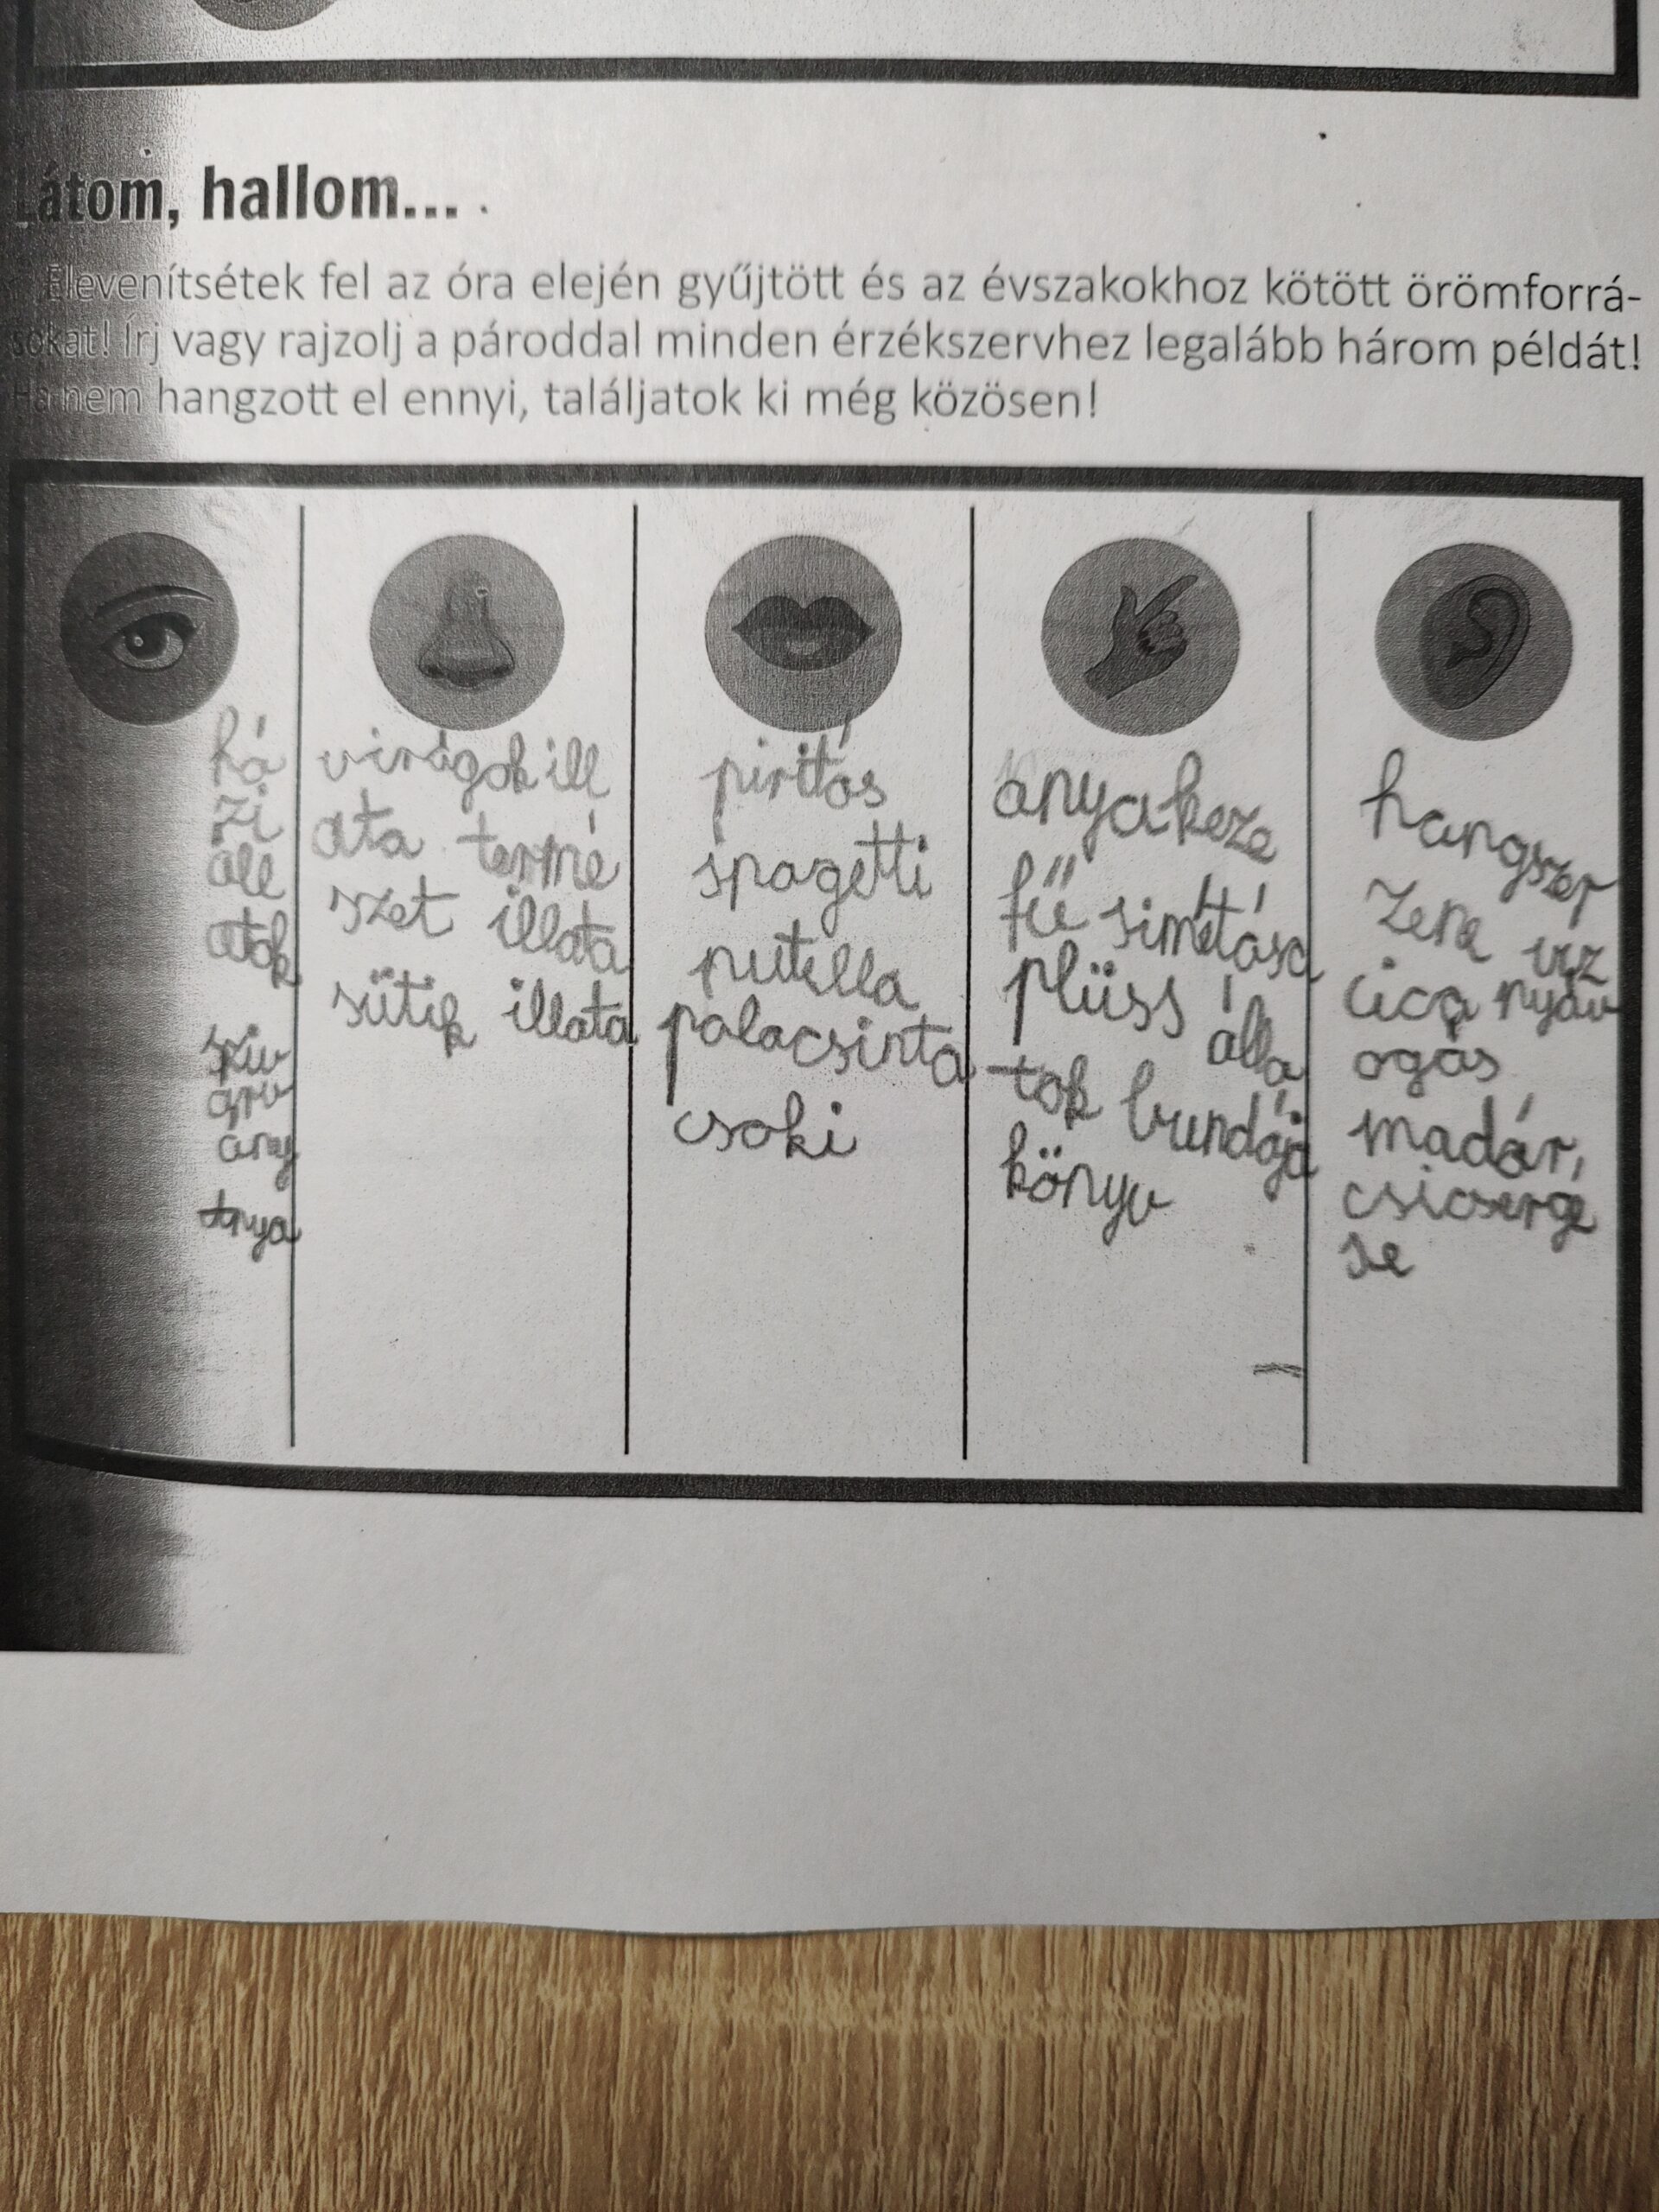 Látom, hallom...
Elevenítsétek fel az óra elején gyűjtött és az évszakokhoz kötött örömforrá-
sokat! Írj vagy rajzolj a pároddal minden érzékszervhez legalább három példát!
Ha nem hangzott el ennyi, találjatok ki még közösen!
há
zi
áll
atok
sziv
árv
ány
anya
virágok ill
ata termé
szet illata
sütik illata
piritós
spagetti
nutella
palacsinta
csoki
anya keze
fű simítása
plüss álla
tok bundája
könyv
hangszer
zene víz
cica nyáv
ogás
madár,
csicsergé
se